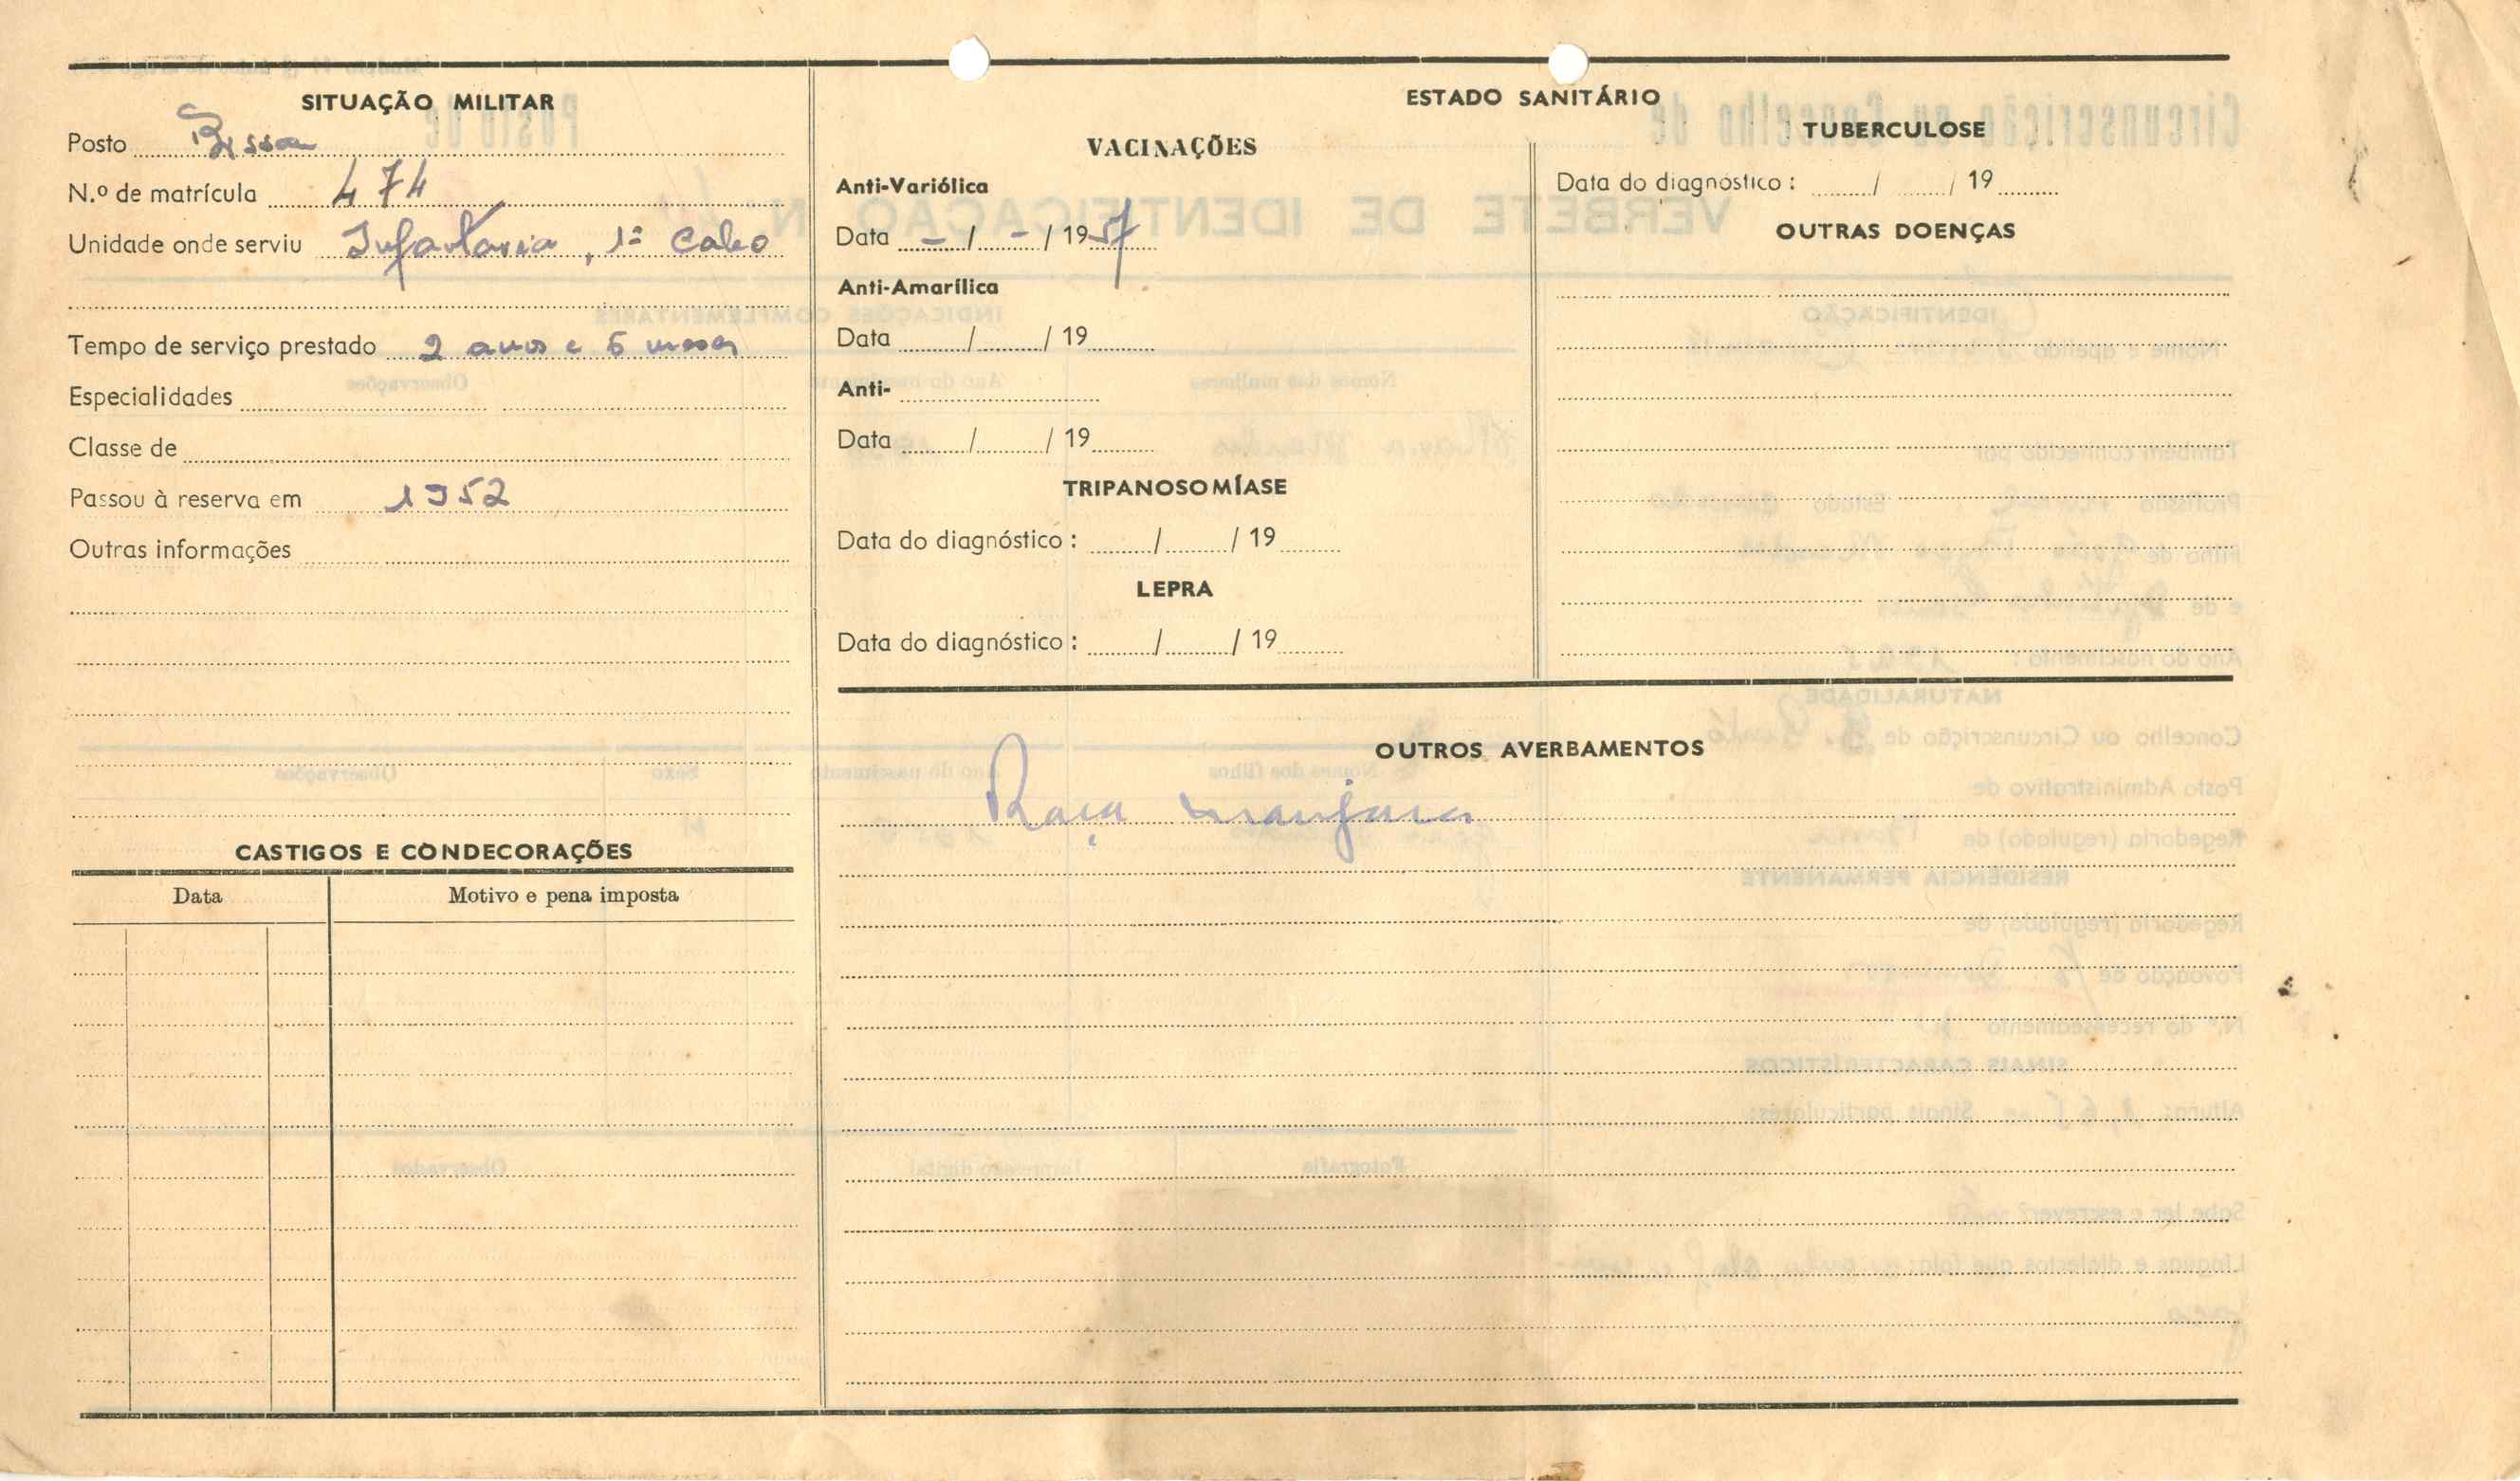 SITUAÇÃO MILITAR
Posto Bissau
N.º de matrícula 474
Unidade onde serviu Infantaria, 1º Cabo
Tempo de serviço prestado 2 anos e 6 meses
Especialidades
Classe de
Passou à reserva em 1952
Outras informações
CASTIGOS E CONDECORAÇÕES
Data Motivo e pena imposta
ESTADO SANITÁRIO
VACINAÇÕES
Anti-Variólica
Data - / - / 1957
Anti-Amarílica
Data / / 19
Anti-
Data / / 19
TRIPANOSOMÍASE
Data do diagnóstico : / / 19
LEPRA
Data do diagnóstico : / / 19
TUBERCULOSE
Data do diagnóstico : / / 19
OUTRAS DOENÇAS
OUTROS AVERBAMENTOS
Raça manjaca